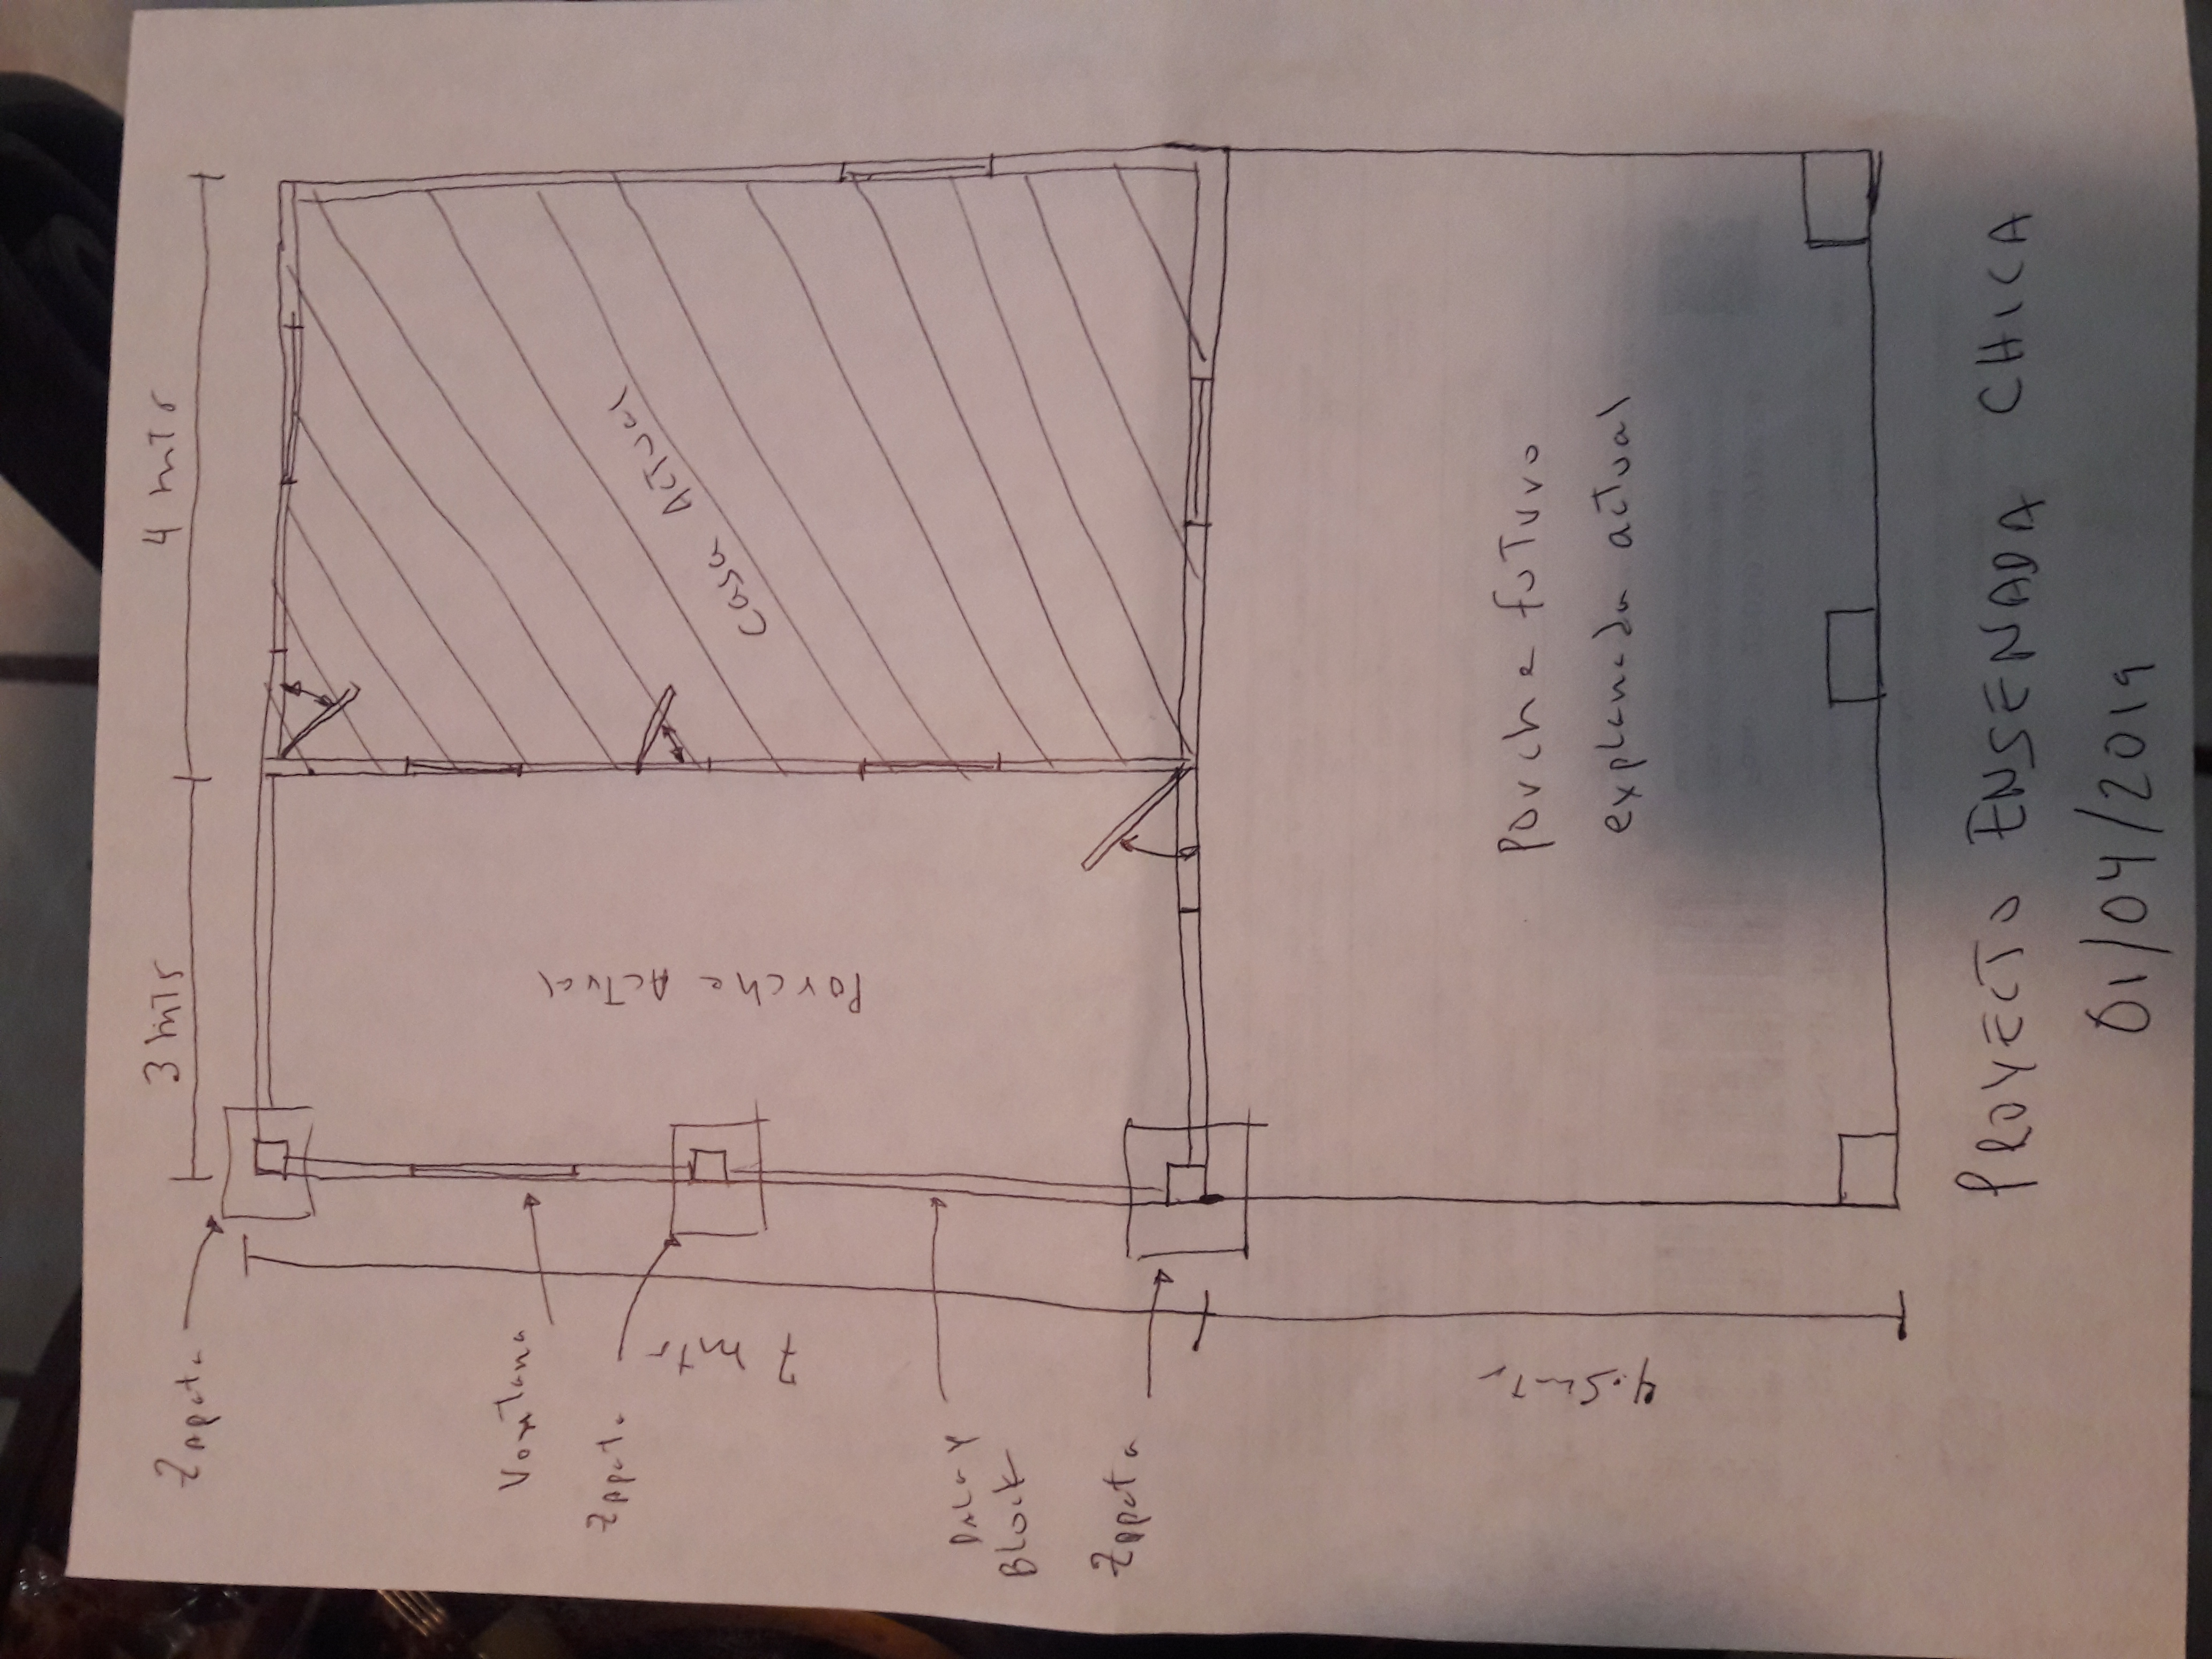 3 mts
4 mts
Zapata
Ventana
Zapata
7 mts
Porche Actual
Casa Actual
Dala y
Block
Zapata
4.5 mts
Porche futuro
explanada actual
PROYECTO ENSENADA CHICA
01/04/2019